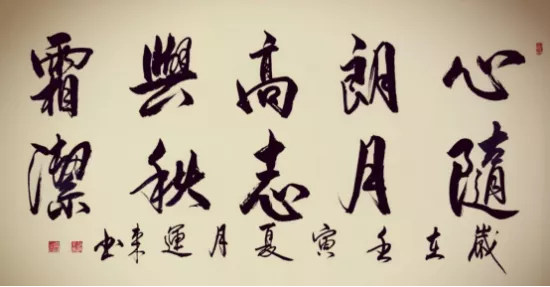 心隨
朗月
高志
與秋
霜潔
歲在壬寅夏月運書